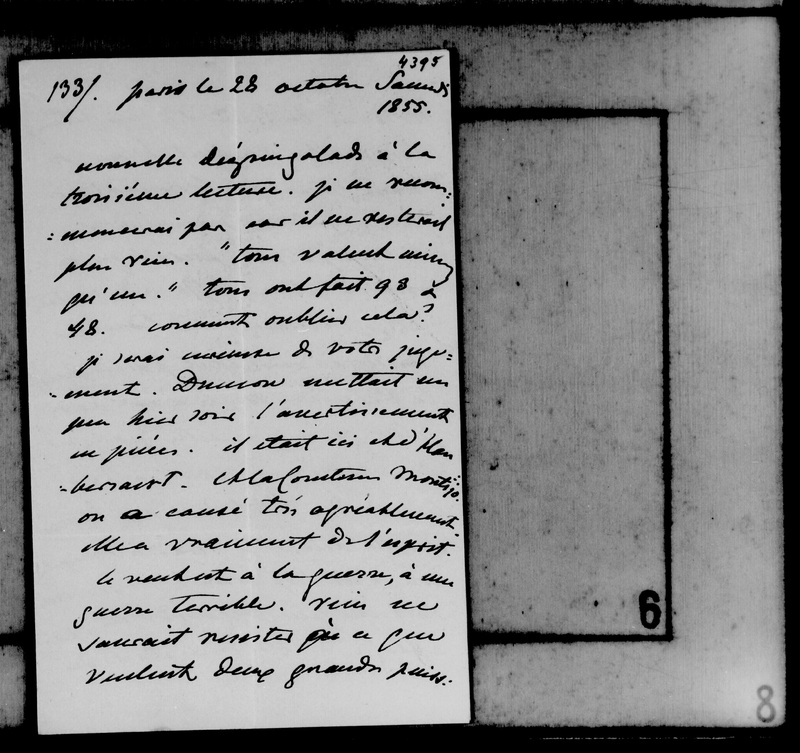 4395
133/. paris le 28 octobre Samedi
1855.
nouvelle dégringolade à la
troisième lecture. je ne recom-
-mencerai pas car il ne resterait
plus rien. "tous valent mieux
qu'un." tous ont fait 93 &
48. comment oublier cela?
je serai curieuse de votre juge-
-ment. Dumon mettait un
peu hier soir l'avertissement
en pièces. il était ici et d'Hau
-bersaert. et la Comtesse Montijo.
on a causé très agréablement
elle a vraiment de l'esprit.
le vent est à la guerre, à une
guerre terrible. rien ne
saurait resister à ce que
veulent deux grandes puiss-
6
8